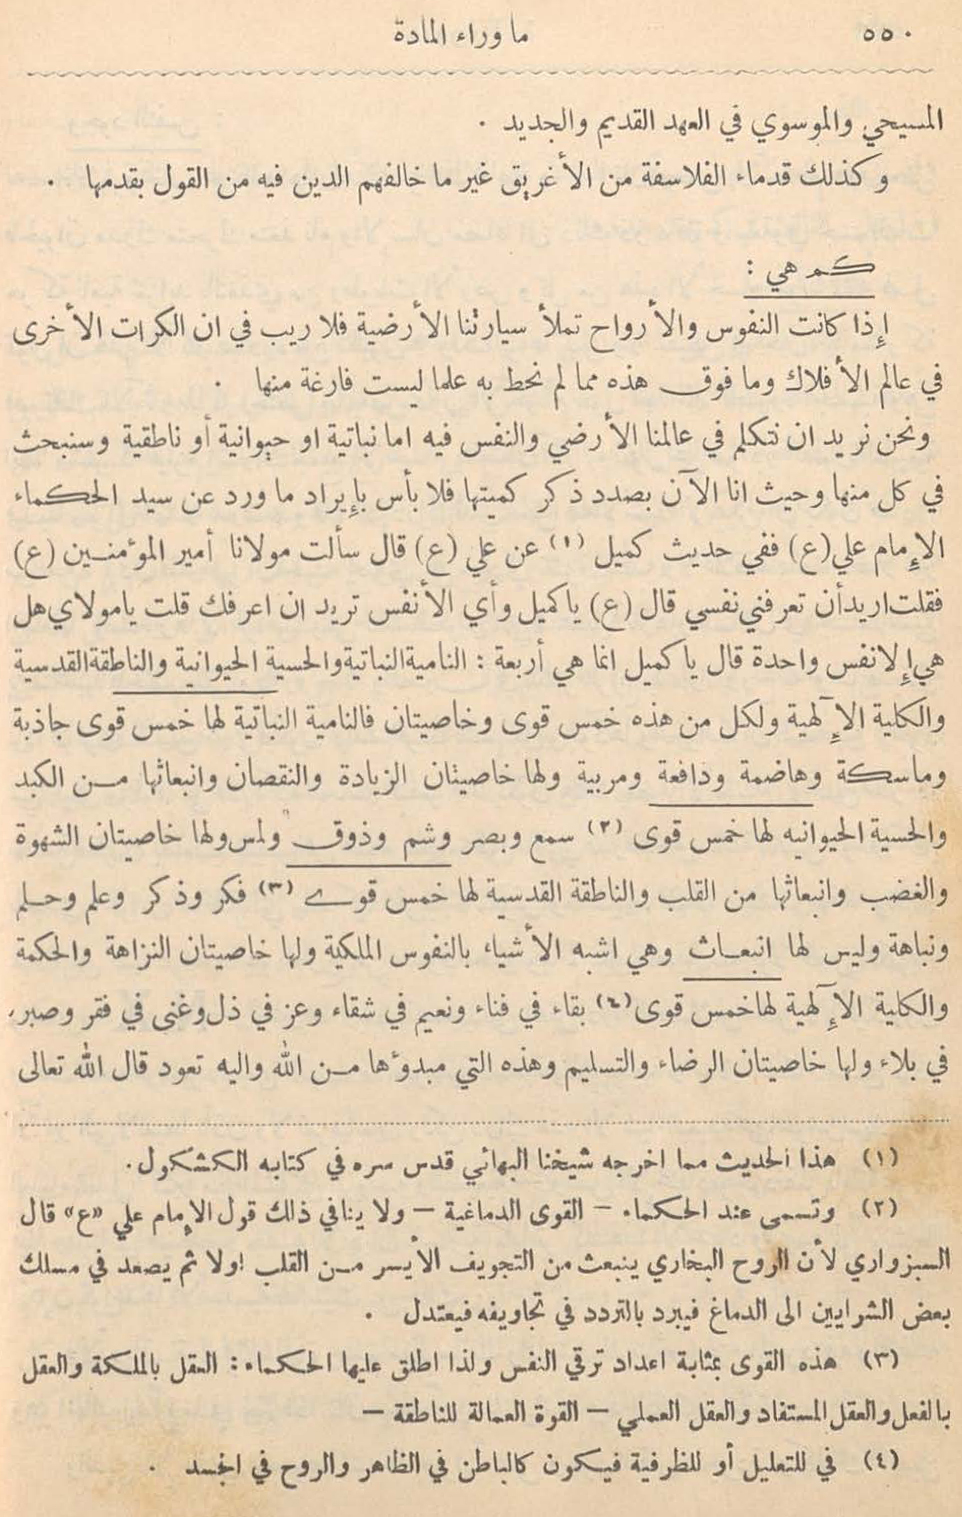 ٥٥٠ ما وراء المادة
المسيحي والموسوي في العهد القديم والجديد .
وكذلك قدماء الفلاسفة من الأغريق غير ما خالفهم الدين فيه من القول بقدمها .
كم هي :
إذا كانت النفوس والأرواح تملأ سيارتنا الأرضية فلا ريب في ان الكرات الأخرى
في عالم الأفلاك وما فوق هذه مما لم نحط به علما ليست فارغة منها .
ونحن نريد ان نتكلم في عالمنا الأرضي والنفس فيه اما نباتية او حيوانية أو ناطقية وسنبحث
في كل منها وحيث انا الآن بصدد ذكر كميتها فلا بأس بإيراد ما ورد عن سيد الحكماء
الإمام علي (ع) ففي حديث كميل (١) عن علي (ع) قال سألت مولانا أمير المؤمنين (ع)
فقلت اريد أن تعرفني نفسي قال (ع) ياكميل وأي الأنفس تريد ان اعرفك قلت يامولاي هل
هي إلا نفس واحدة قال يا كميل انما هي أربعة : النامية النباتية والحسية الحيوانية والناطقة القدسية
والكلية الإلهية ولكل من هذه خمس قوى وخاصيتان فالنامية النباتية لها خمس قوى جاذبة
وماسكة وهاضمة ودافعة ومربية ولها خاصيتان الزيادة والنقصان وانبعاثها من الكبد
والحسية الحيوانيه لها خمس قوى (٢) سمع وبصر وشم وذوق ولمس ولها خاصيتان الشهوة
والغضب وانبعاثها من القلب والناطقة القدسية لها خمس قوى (٣) فكر وذكر وعلم وحلم
ونباهة وليس لها انبعاث وهي اشبه الأشياء بالنفوس الملكية ولها خاصيتان النزاهة والحكمة
والكلية الإلهية لها خمس قوى (٤) بقاء في فناء ونعيم في شقاء وعز في ذل وغنى في فقر وصبر
في بلاء ولها خاصيتان الرضاء والتسليم وهذه التي مبدؤها من الله واليه تعود قال الله تعالى
(١) هذا الحديث مما اخرجه شيخنا البهائي قدس سره في كتابه الكشكول .
(٢) وتسمى عند الحكماء - القوى الدماغية - ولا ينافي ذلك قول الإمام علي «ع» قال
السبزواري لأن الروح البخاري ينبعث من التجويف الأيسر من القلب اولا ثم يصعد في مسلك
بعض الشرايين الى الدماغ فيبرد بالتردد في تجاويفه فيعتدل .
(٣) هذه القوى بمثابة اعداد ترقي النفس ولذا اطلق عليها الحكماء : العقل بالملكة والعقل
بالفعل والعقل المستفاد والعقل العملي - القوة العمالة للناطقة -
(٤) في للتعليل أو للظرفية فيكون كالباطن في الظاهر والروح في الجسد .